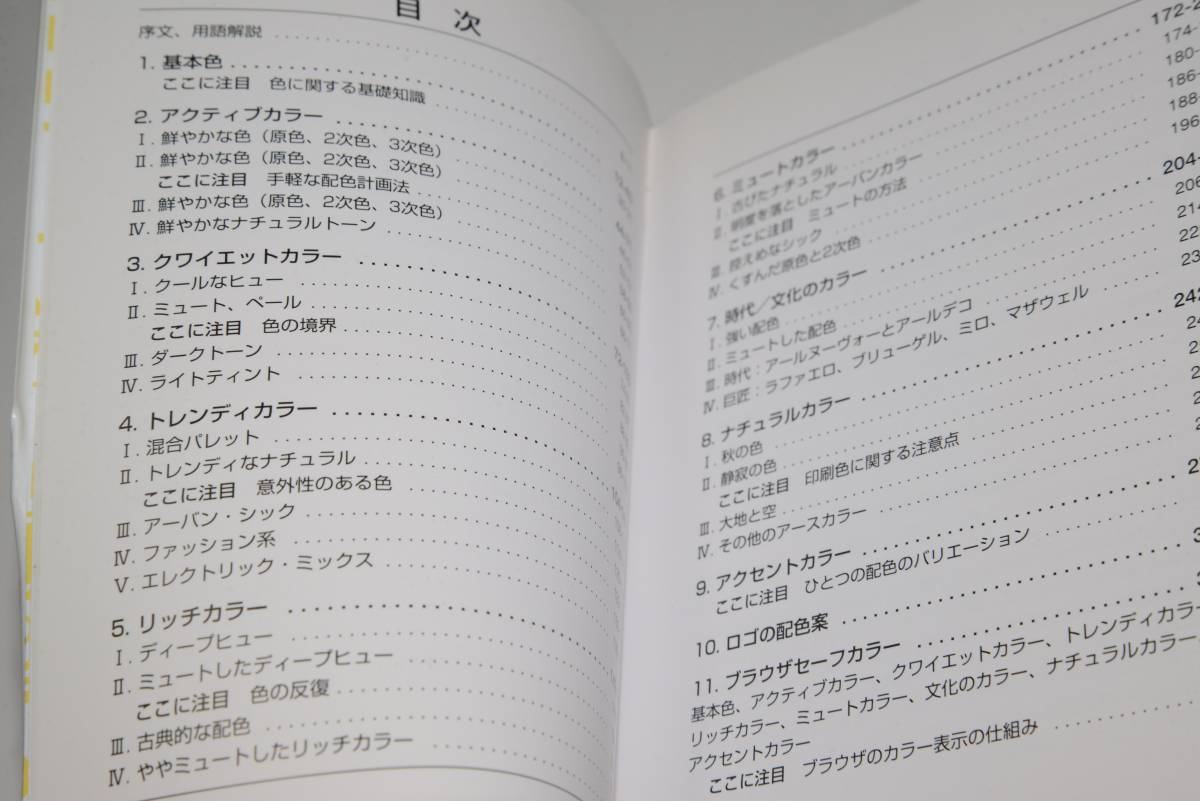 目 次
序文、用語解説
1. 基本色
ここに注目 色に関する基礎知識
2. アクティブカラー
Ⅰ. 鮮やかな色（原色、2次色、3次色）
Ⅱ. 鮮やかな色（原色、2次色、3次色）
ここに注目 手軽な配色計画法
Ⅲ. 鮮やかな色（原色、2次色、3次色）
Ⅳ. 鮮やかなナチュラルトーン
3. クワイエットカラー
Ⅰ. クールなヒュー
Ⅱ. ミュート、ペール
ここに注目 色の境界
Ⅲ. ダークトーン
Ⅳ. ライトティント
4. トレンディカラー
Ⅰ. 混合パレット
Ⅱ. トレンディなナチュラル
ここに注目 意外性のある色
Ⅲ. アーバン・シック
Ⅳ. ファッション系
Ⅴ. エレクトリック・ミックス
5. リッチカラー
Ⅰ. ディープヒュー
Ⅱ. ミュートしたディープヒュー
ここに注目 色の反復
Ⅲ. 古典的な配色
Ⅳ. ややミュートしたリッチカラー
6. ミュートカラー 172-2
Ⅰ. 古びたナチュラル 174-
Ⅱ. 明度を落としたアーバンカラー 180-
ここに注目 ミュートの方法 186-
Ⅲ. 控えめなシック 188-
Ⅳ. くすんだ原色と2次色 196-
7. 時代／文化のカラー 204-
Ⅰ. 強い配色 206
Ⅱ. ミュートした配色 214
Ⅲ. 時代：アールヌーヴォーとアールデコ 22
Ⅳ. 巨匠：ラファエロ、ブリューゲル、ミロ、マザウェル 23
8. ナチュラルカラー 242
Ⅰ. 秋の色 24
Ⅱ. 静寂の色 2
ここに注目 印刷色に関する注意点 2
Ⅲ. 大地と空 2
Ⅳ. その他のアースカラー 2
9. アクセントカラー 2
ここに注目 ひとつの配色のバリエーション
10. ロゴの配色案 3
11. ブラウザセーフカラー 3
基本色、アクティブカラー、クワイエットカラー、トレンディカラー
リッチカラー、ミュートカラー、文化のカラー、ナチュラルカラー
アクセントカラー
ここに注目 ブラウザのカラー表示の仕組み